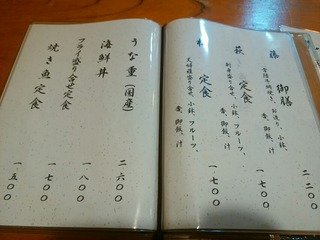 藤 御膳
お造り、小鉢、
香、御飯、汁
二二〇〇
萩 定食
刺身盛り合せ、小鉢、フルーツ、
香、御飯、汁
一七〇〇
定食
天婦羅盛合せ、小鉢、フルーツ、
香、御飯、汁
一七〇〇
うな重(国産)
二六〇〇
海鮮丼
一八〇〇
フライ盛り合せ定食
一七〇〇
焼き魚定食
一五〇〇